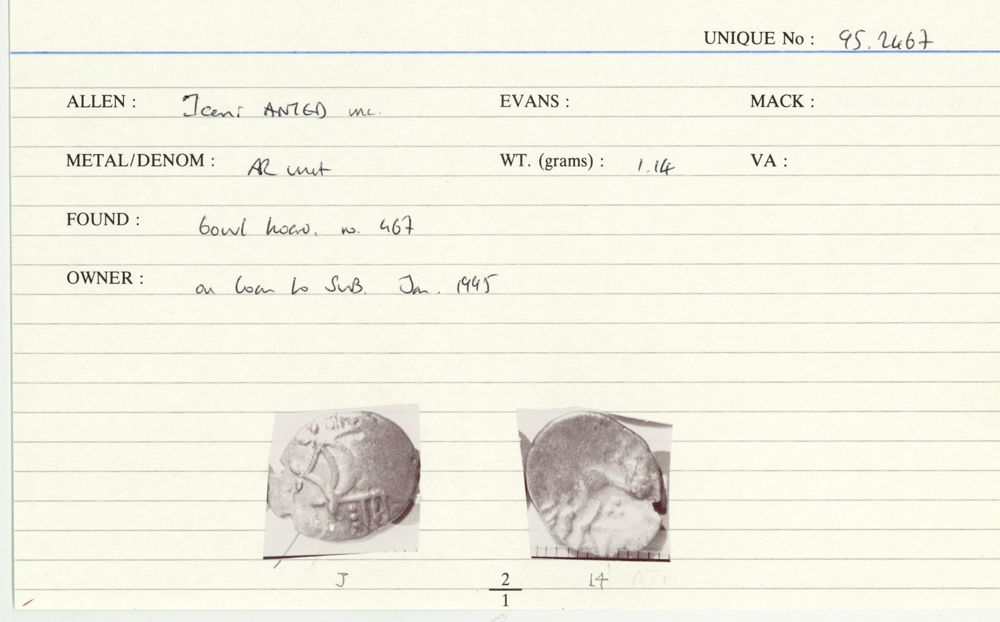 UNIQUE No : 95.2467
ALLEN : Iceni ANTED inc. EVANS : MACK :
METAL/DENOM : AR unit WT. (grams) : 1.14 VA :
FOUND : bowl hoard. no. 467
OWNER : on loan to SWB. Jan. 1995
J 2 14
1